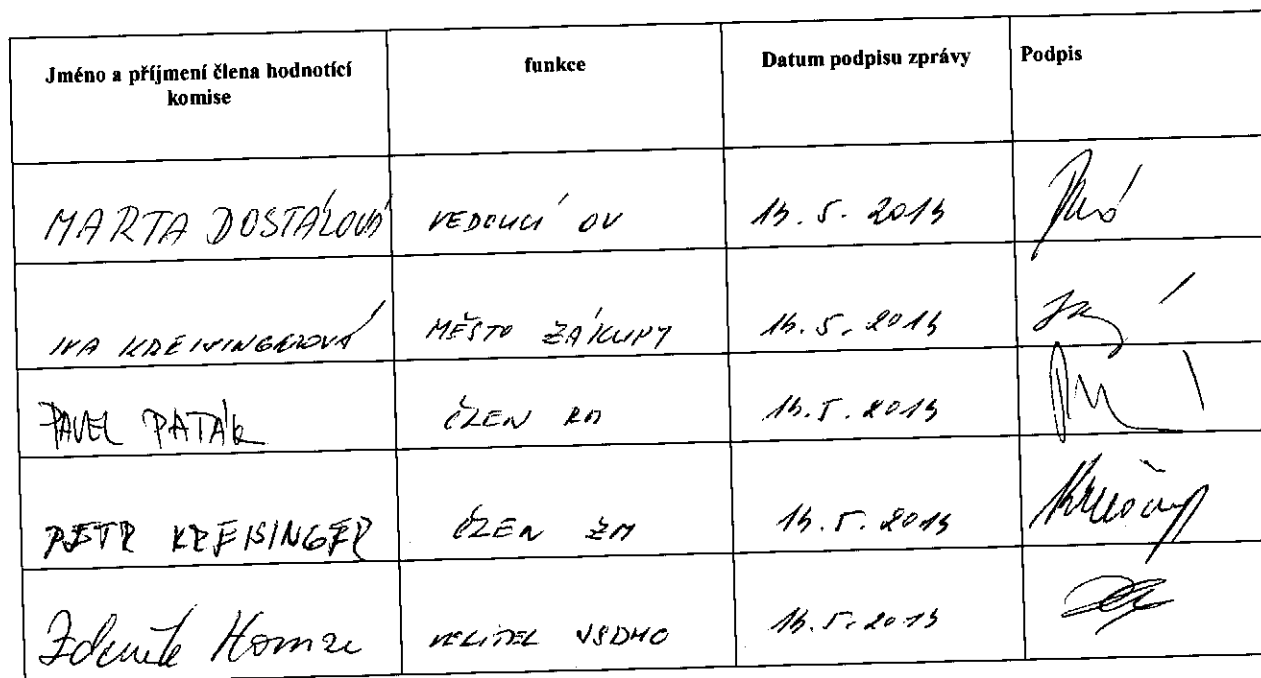 Jméno a příjmení člena hodnotící komise
funkce
Datum podpisu zprávy
Podpis
MARTA DOSTÁLOVÁ VEDOUCÍ OV 15. 5. 2015
IVA KREISINGEROVÁ MĚSTO ZÁKUPY 15. 5. 2015
PAVEL PATÁK ČLEN RM 15. 5. 2015
PETR KREISINGER ČLEN ZM 15. 5. 2015
Zdeněk VELITEL VSDHO 15. 5. 2015